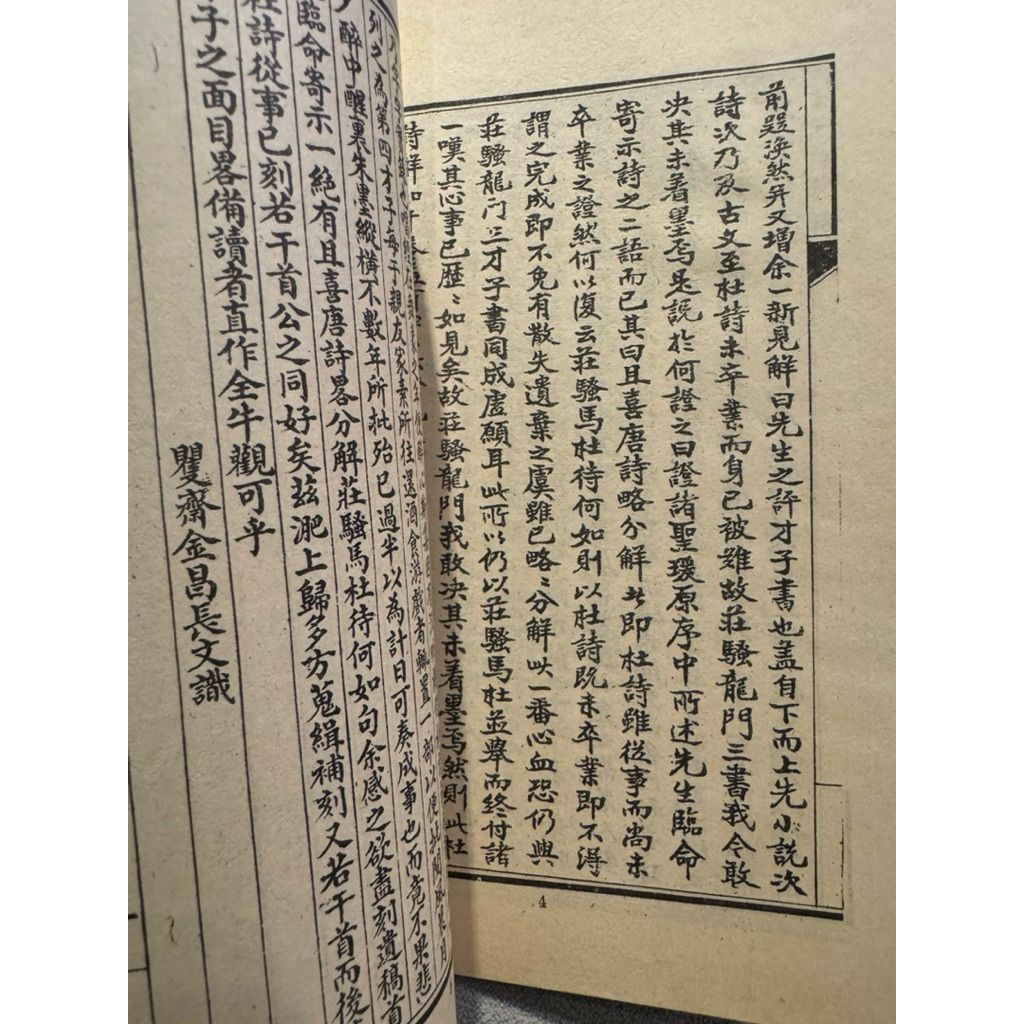 渙然并又增余一新見解曰先生之評才子書也盖自下而上先小説次
詩次乃及古文至杜詩未卒業而身已被難故莊騷龍門三書我今敢
决其未着墨焉是説於何證之曰證諸聖瑗原序中所述先生臨命
寄示詩之二語而已其曰且喜唐詩略分解此即杜詩雖從事而尚未
卒業之證然何以復云莊騷馬杜待何如則以杜詩既未卒業即不得
謂之完成即不免有散失遺棄之虞雖已略〻分解此一番心血恐仍與
莊騷龍门三才子書同成虛願耳此所以仍以莊騷馬杜並舉而終付諸
一嘆其心事已歷〻如見矣故莊騷龍門我敢决其未着墨焉然則此杜
4
列之為第四才子每于親友家素所往還酒食游戲者輒置一部以便批閱風晨月
醉中醒裏朱墨縱橫不數年所批殆已過半以為計日可奏成事也而竟不果悲
臨命寄示一絶有且喜唐詩畧分解莊騷馬杜待何如句余感之欲盡刻遺稿首
杜詩從事已刻若干首公之同好矣茲淝上歸多方蒐緝補刻又若干首而後
子之面目畧備讀者直作全牛觀可乎
矍齋金昌長文識